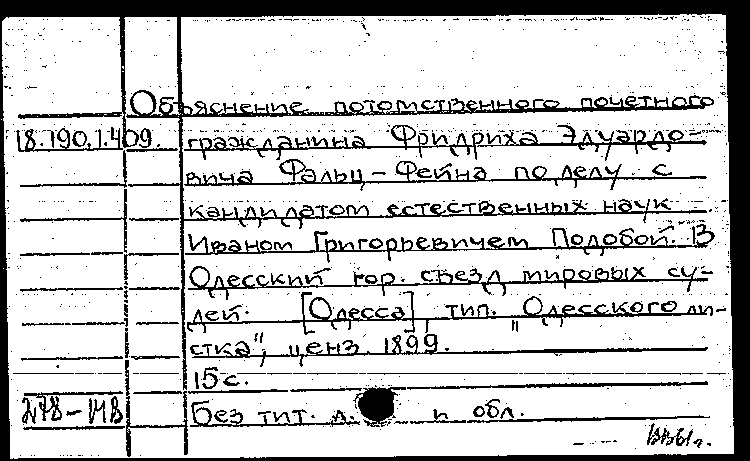 Объяснение потомственного почетного
18.190.1.409. гражданина Фридриха Эдуардо-
вича Фальц-Фейна по делу с
кандидатом естественных наук
Иваном Григорьевичем Подобой. В
Одесский гор. съезд мировых су-
дей. [Одесса], тип. "Одесского ли-
стка", ценз. 1899.
15 с.
Без тит. л. и обл.